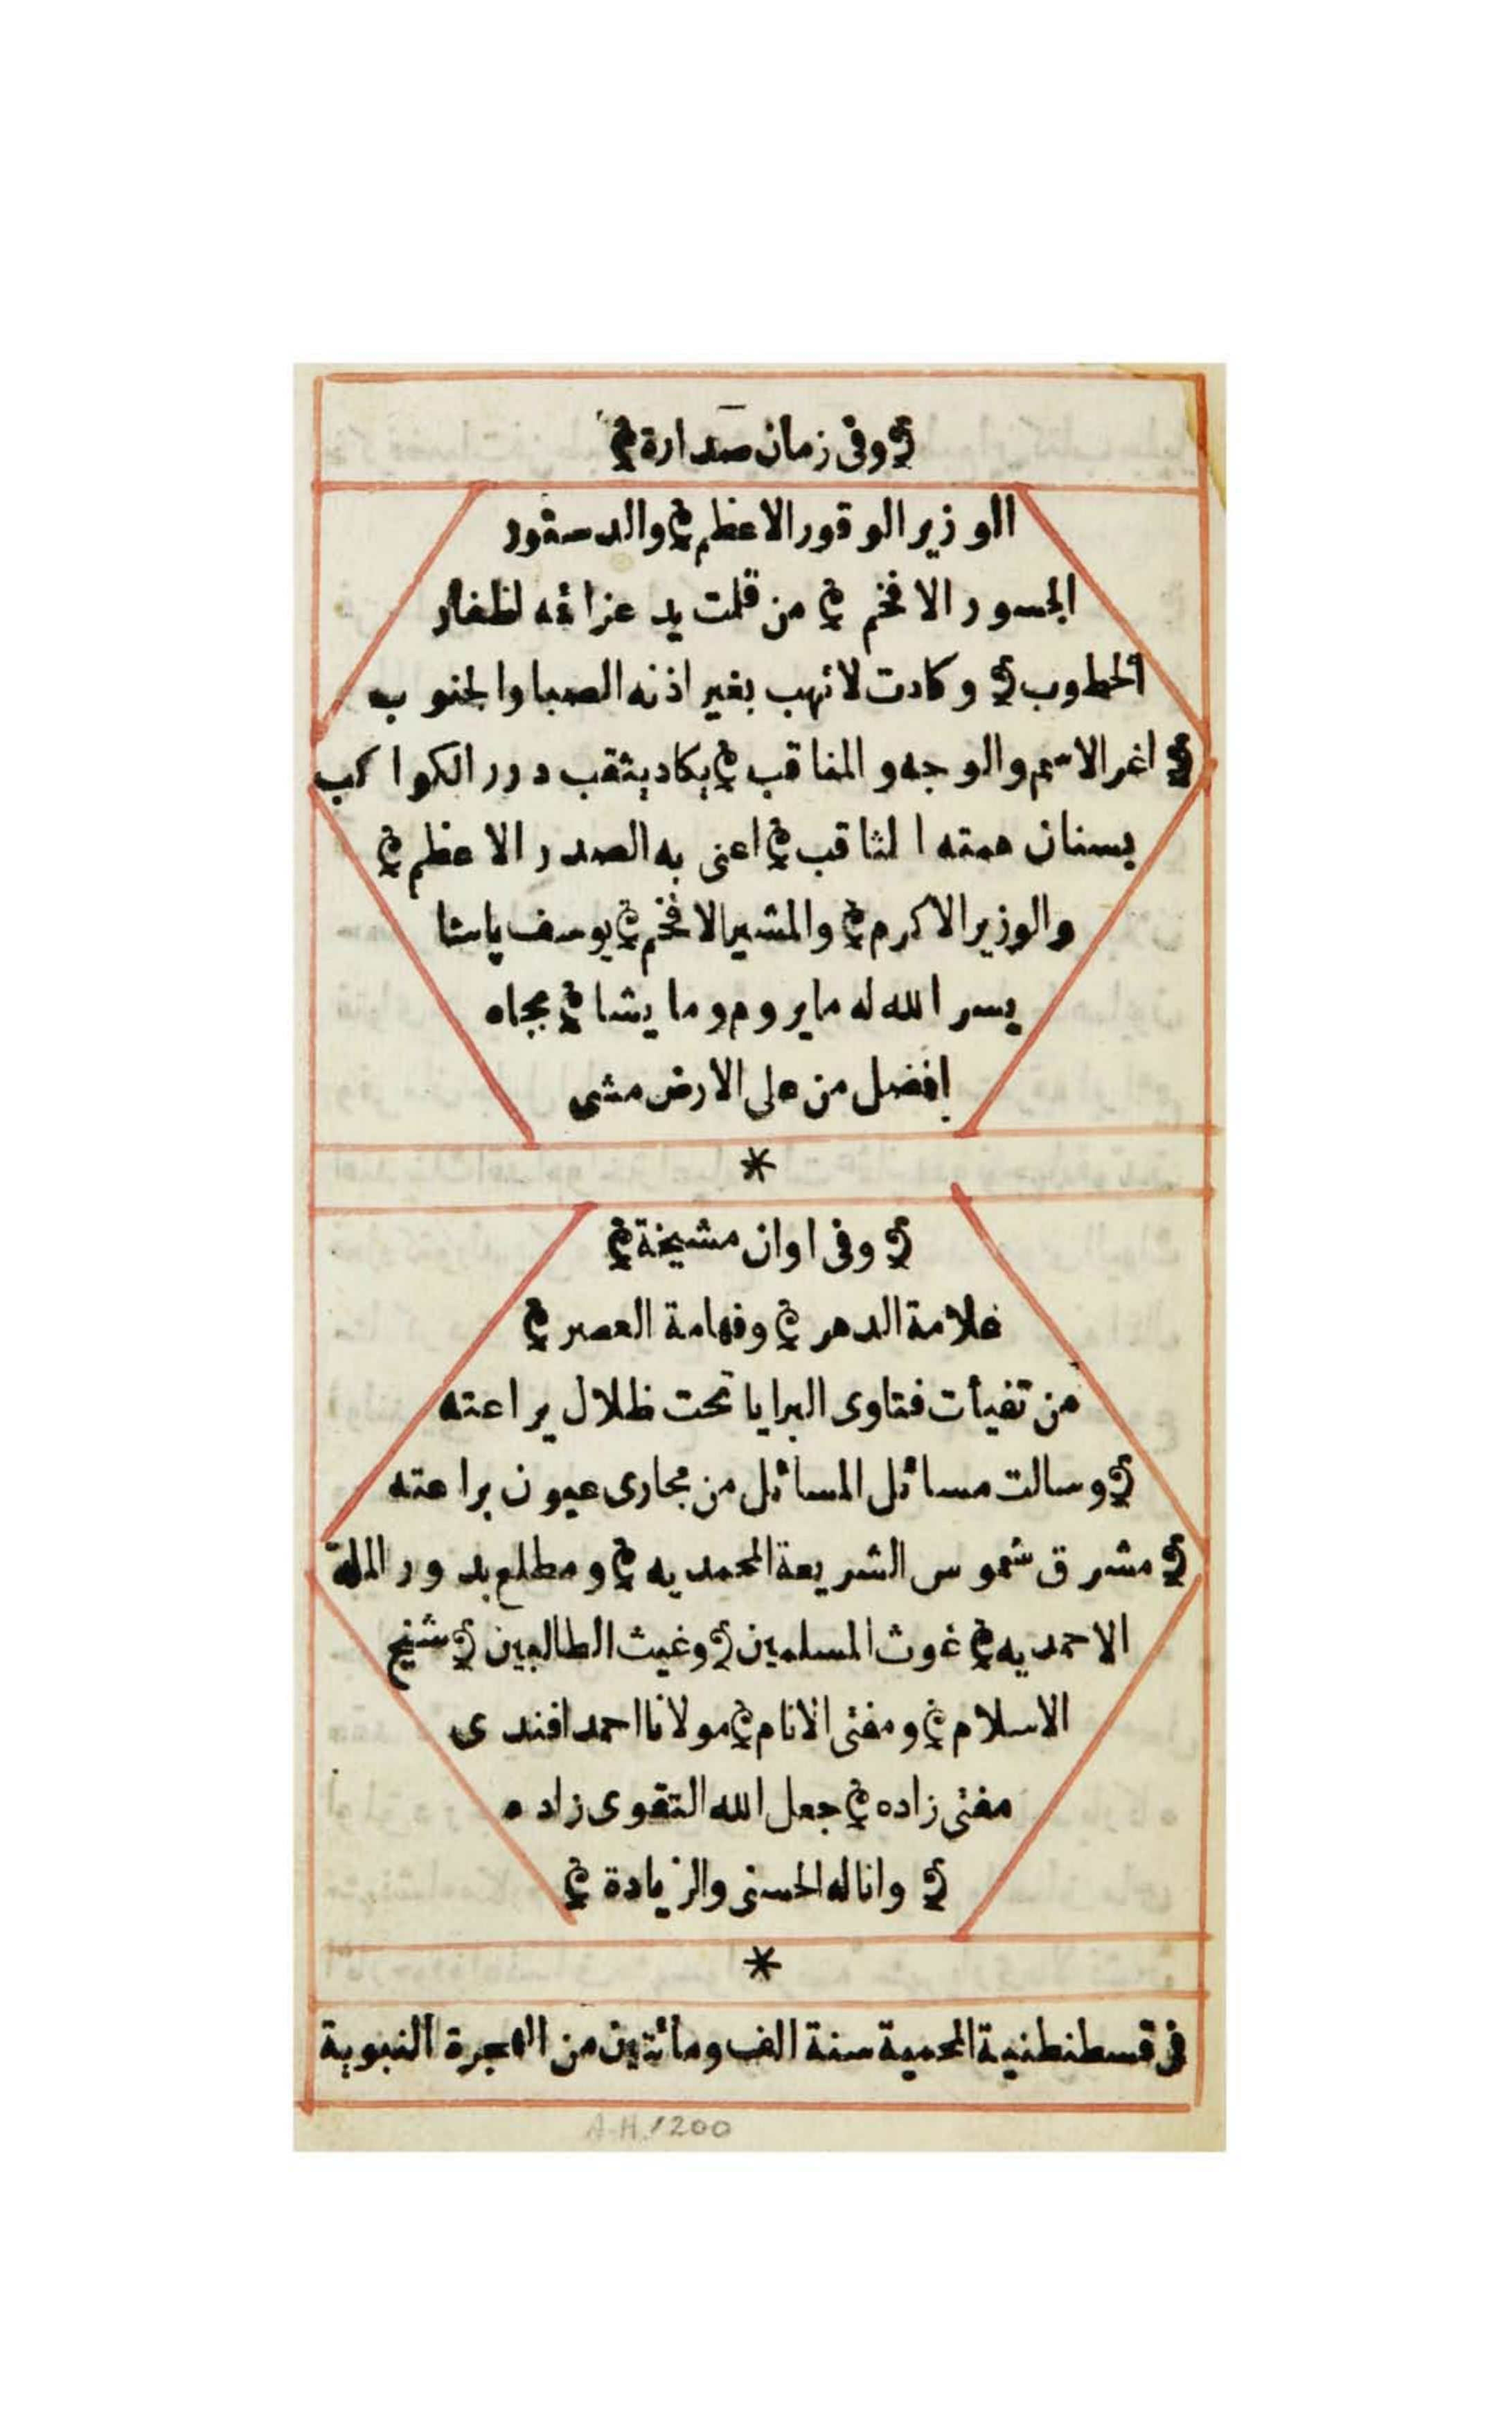 وفى زمان صدارة
الوزير الوقور الاعظم والدستور
الجسور الافخم من قلمت يد عزائمه اظفار
الخطوب وكادت لا تهب بغير اذنه الصبا والجنوب
اغر الاسم والوجه والمناقب يكاد يثقب درر الكواكب
بسنان همته الثاقب اعنى به الصدر الاعظم
والوزير الاكرم والمشير الافخم يوسف پاشا
يسر الله له ما يروم وما يشا بجاه
افضل من على الارض مشى
*
وفى اوان مشيخة
علامة الدهر وفهامة العصر
من تفيأت فتاوى البرايا تحت ظلال يراعته
وسالت مسائل المسائل من مجارى عيون براعته
مشرق شموس الشريعة المحمديه ومطلع بدور الملة
الاحمديه غوث المسلمين وغيث الطالبين شيخ
الاسلام ومفتى الانام مولانا احمد افندى
مفتى زاده جعل الله التقوى زاده
واناله الحسنى والزيادة
*
فى قسطنطنية المحمية سنة الف ومائتين من الهجرة النبوية
A.H. 1200